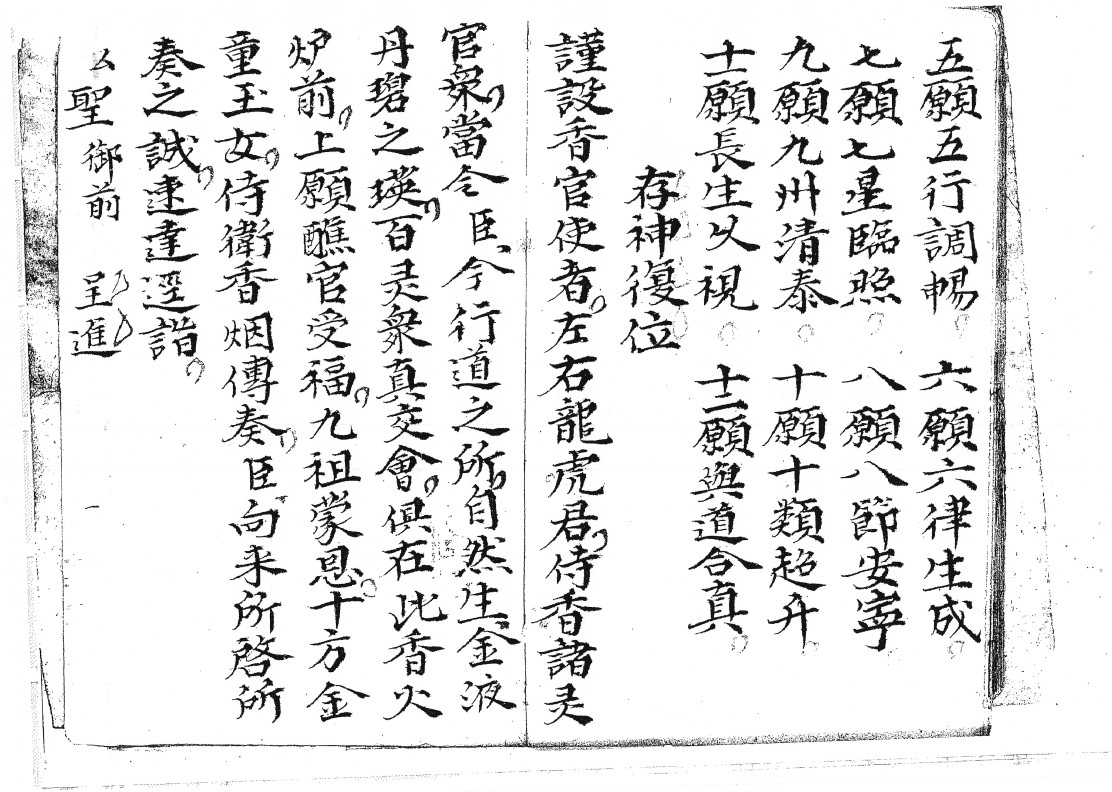 五願五行調暢　六願六律生成
七願七星臨照　八願八節安寧
九願九州清泰　十願十類超升
十一願長生久視　十二願與道合真
存神復位
謹設香官使者左右龍虎君侍香諸灵
官衆當令臣今行道之所自然生金液
丹碧之瑛百灵衆真交會俱在此香火
炉前上願醮官受福九祖蒙恩十方金
童玉女侍衛香烟傳奏臣向来所啓所
奏之誠速達逕詣
厶聖御前　呈進